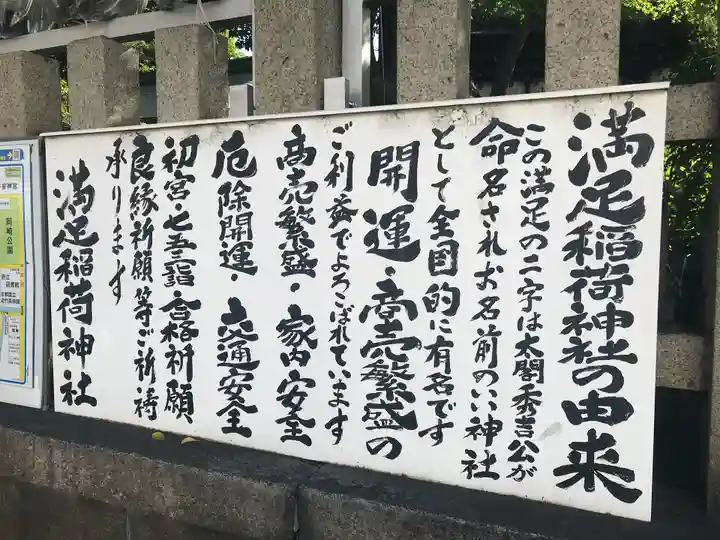 満足稲荷神社の由来
この満足の二字は太閤秀吉公が
命名されお名前のいい神社
として全国的に有名です
開運・商売繁盛の
ご利益でよろこばれています
商売繁盛・家内安全
厄除開運・交通安全
初宮・七五三詣 合格祈願
良縁祈願等ご祈祷
承ります
満足稲荷神社
岡崎公園